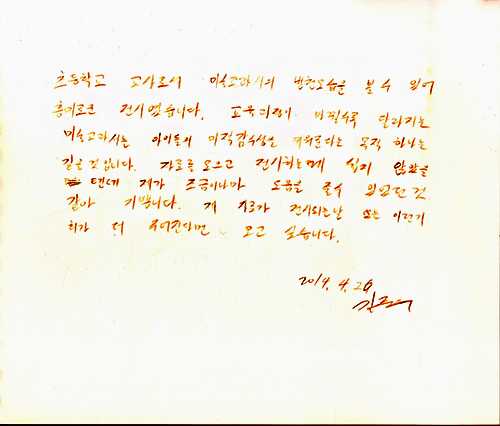 초등학교 교사로서 미술교과서의 변천모습을 볼 수 있어
흥미로운 전시였습니다. 교육과정이 바뀔수록 달라지는
미술교과서는 아이들의 미적감수성을 키워준다는 목적 하나는
같을 것입니다. 자료를 모으고 전시하는데 쉽지 않았을
텐데 제가 조금이나마 도움을 줄 수 있었던 것
같아 기쁩니다. 제 자료가 전시되는날 또는 이런기
회가 더 주어진다면 오고 싶습니다.
2014. 4. 26